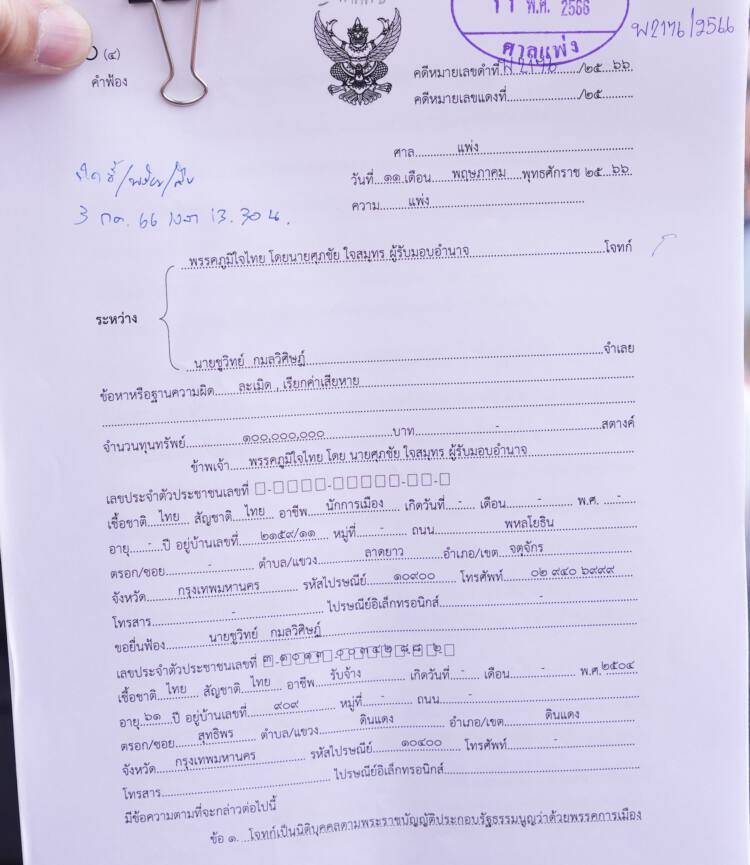 ๑๑ พ.ศ. 2566
ศาลแพ่ง
พ2176/2566
๐ (๔)
คำฟ้อง
คดีหมายเลขดำที่ พ 2176 /๒๕ ๖๖
คดีหมายเลขแดงที่ /๒๕
ศาล แพ่ง
วันที่ ๑๑ เดือน พฤษภาคม พุทธศักราช ๒๕ ๖๖
ความ แพ่ง
3 กค. 66 เวลา 13.30 น.
พรรคภูมิใจไทย โดยนายศุภชัย ใจสมุทร ผู้รับมอบอำนาจ โจทก์
ระหว่าง
นายชูวิทย์ กมลวิศิษฎ์ จำเลย
ข้อหาหรือฐานความผิด ละเมิด , เรียกค่าเสียหาย
จำนวนทุนทรัพย์ ๑๐๐,๐๐๐,๐๐๐ บาท - สตางค์
ข้าพเจ้า พรรคภูมิใจไทย โดย นายศุภชัย ใจสมุทร ผู้รับมอบอำนาจ
เลขประจำตัวประชาชนเลขที่
เชื้อชาติ ไทย สัญชาติ ไทย อาชีพ นักการเมือง เกิดวันที่ - เดือน - พ.ศ. -
อายุ - ปี อยู่บ้านเลขที่ ๒๑๕๙/๑๑ หมู่ที่ - ถนน พหลโยธิน
ตรอก/ซอย - ตำบล/แขวง ลาดยาว อำเภอ/เขต จตุจักร
จังหวัด กรุงเทพมหานคร รหัสไปรษณีย์ ๑๐๙๐๐ โทรศัพท์ ๐๒ ๙๔๐ ๖๙๙๙
โทรสาร - ไปรษณีย์อิเล็กทรอนิกส์ -
ขอยื่นฟ้อง นายชูวิทย์ กมลวิศิษฎ์
เลขประจำตัวประชาชนเลขที่
เชื้อชาติ ไทย สัญชาติ ไทย อาชีพ รับจ้าง เกิดวันที่ - เดือน - พ.ศ. ๒๕๐๔
อายุ ๖๑ ปี อยู่บ้านเลขที่ ๙๐๙ หมู่ที่ - ถนน -
ตรอก/ซอย สุทธิพร ตำบล/แขวง ดินแดง อำเภอ/เขต ดินแดง
จังหวัด กรุงเทพมหานคร รหัสไปรษณีย์ ๑๐๔๐๐ โทรศัพท์ -
โทรสาร ไปรษณีย์อิเล็กทรอนิกส์
มีข้อความตามที่จะกล่าวต่อไปนี้
ข้อ ๑. โจทก์เป็นนิติบุคคลตามพระราชบัญญัติประกอบรัฐธรรมนูญว่าด้วยพรรคการเมือง